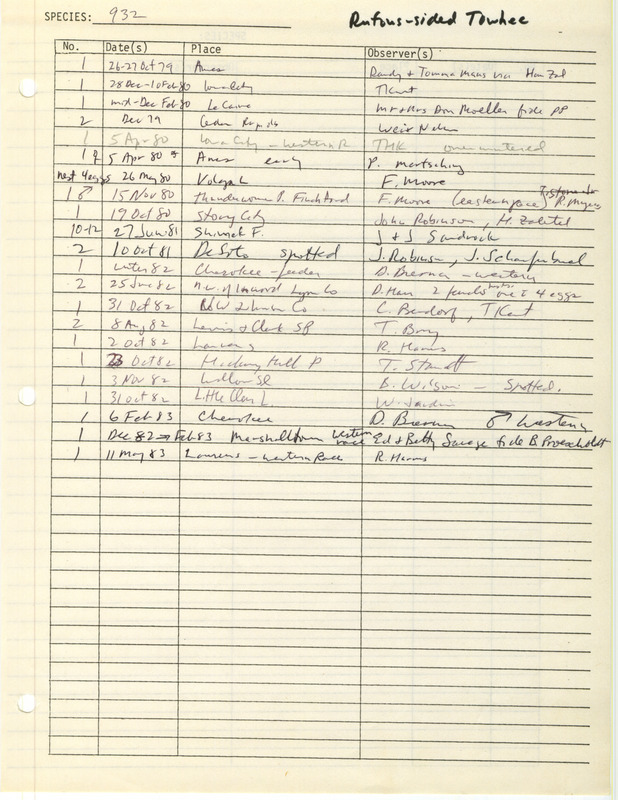 SPECIES: 932 Rufous-sided Towhee
No. Date(s) Place Observer(s)
1 26-27 Oct 79 Ames Randy & Tomma Maas via
1 28 Dec-10 Feb 80 Iowa City T Kent
1 mid-Dec Feb 80 Le Claire Mr & Mrs Don Moeller fide PP
2 Dec 79 Cedar Rapids Weir Nelson
1 5 Apr 80 Iowa City - western R THK overwintered
1 ♀ 5 Apr 80 Ames early P. Martsching
nest 4 eggs 26 May 80 Volga L F. Moore
1 ♂ 15 Nov 80 F. Moore (eastern race) R. Myers
1 19 Oct 80 Story City John Robinson, H. Zaletel
10-12 27 Jun 81 Shimek F. J & J Sandrock
2 10 Oct 81 DeSoto spotted J. Robinson, J. Schaufenbuel
1 winter 82 Cherokee - feeder D. Bierman - western
2 25 June 82 n.w. of Inwood Lyon Co 2 females one & 4 eggs
1 31 Oct 82 Co C. Bendorf, T Kent
2 8 Aug 82 Lewis & Clark SP T. Bray
1 2 Oct 82 Laurens R. Harms
1 23 Oct 82 Hickory Hill P T. Staudt
1 3 Nov 82 Willow Sl B. Wilson - Spotted.
1 31 Oct 82 Little Clear L. W. Jardine
1 6 Feb 83 Cherokee D. Bierman ♂ Western
1 Dec 82 → Feb 83 Marshalltown western race Ed & Betty Savage fide B. Proescholdt
1 11 May 83 Laurens - western Race R. Harms